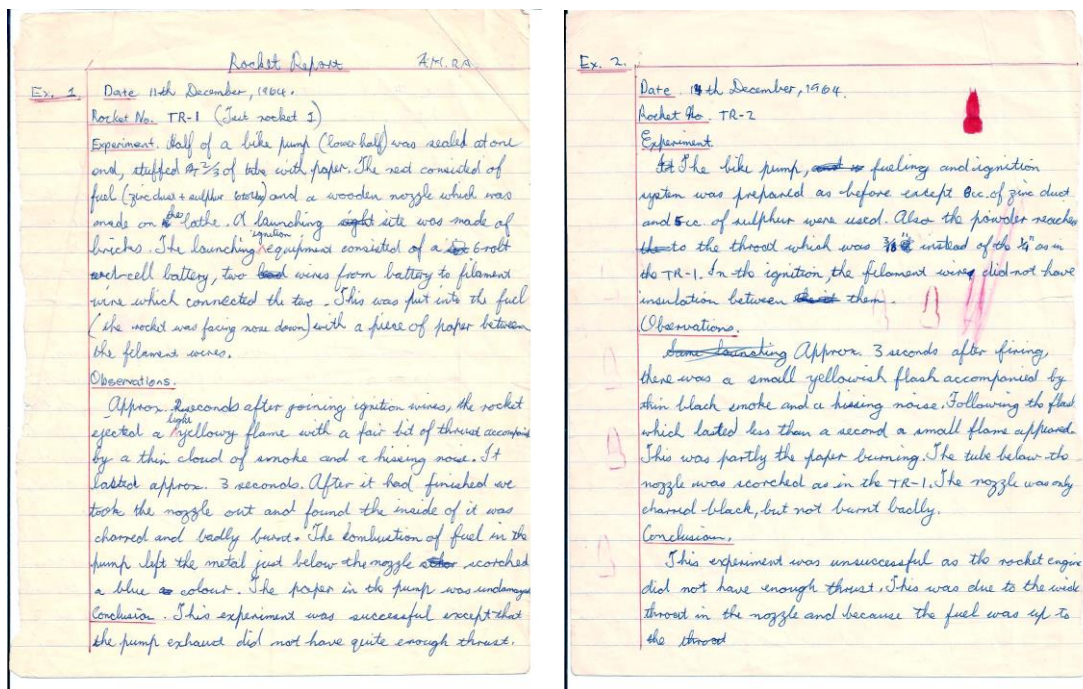 Rocket Report
Ex. 1 Date 11th December, 1964.
Rocket No. TR-1 (Test rocket 1)
Experiment. Half of a bike pump (lower half) was sealed at one
end, stuffed 2/3 of tube with paper. The rest consisted of
fuel (zinc dust + sulphur) and a wooden nozzle which was
made on the lathe. A launching site was made of
bricks. The launching ignition equipment consisted of a 6 volt
wet-cell battery, two wires from battery to filament
wire which connected the two. This was put into the fuel
(the rocket was facing nose down) with a piece of paper between
the filament wires.
Observations.
Approx. seconds after joining ignition wires, the rocket
ejected a light yellowy flame with a fair bit of thrust
by a thin cloud of smoke and a hissing noise. It
lasted approx. 3 seconds. After it had finished we
took the nozzle out and found the inside of it was
charred and badly burnt. The combustion of fuel in the
pump left the metal just below the nozzle scorched
a blue colour. The paper in the pump was undamaged
Conclusion. This experiment was successful except that
the pump exhaust did not have quite enough thrust.
Ex. 2.
Date 14th December, 1964.
Rocket No. TR-2
Experiment.
The bike pump, fueling and ignition
system was prepared as before except 8cc. of zinc dust
and 5cc. of sulphur were used. Also the powder reaches
to the throat which was 3/8" instead of the 1/4" as in
the TR-1. In the ignition, the filament wires did not have
insulation between them.
Observations.
Same launching Approx. 3 seconds after firing,
there was a small yellowish flash accompanied by
thin black smoke and a hissing noise. Following the flash
which lasted less than a second a small flame appeared.
This was partly the paper burning. The tube below the
nozzle was scorched as in the TR-1. The nozzle was only
charred black, but not burnt badly.
Conclusion.
This experiment was unsuccessful as the rocket engine
did not have enough thrust. This was due to the wide
throat in the nozzle and because the fuel was up to
the throat